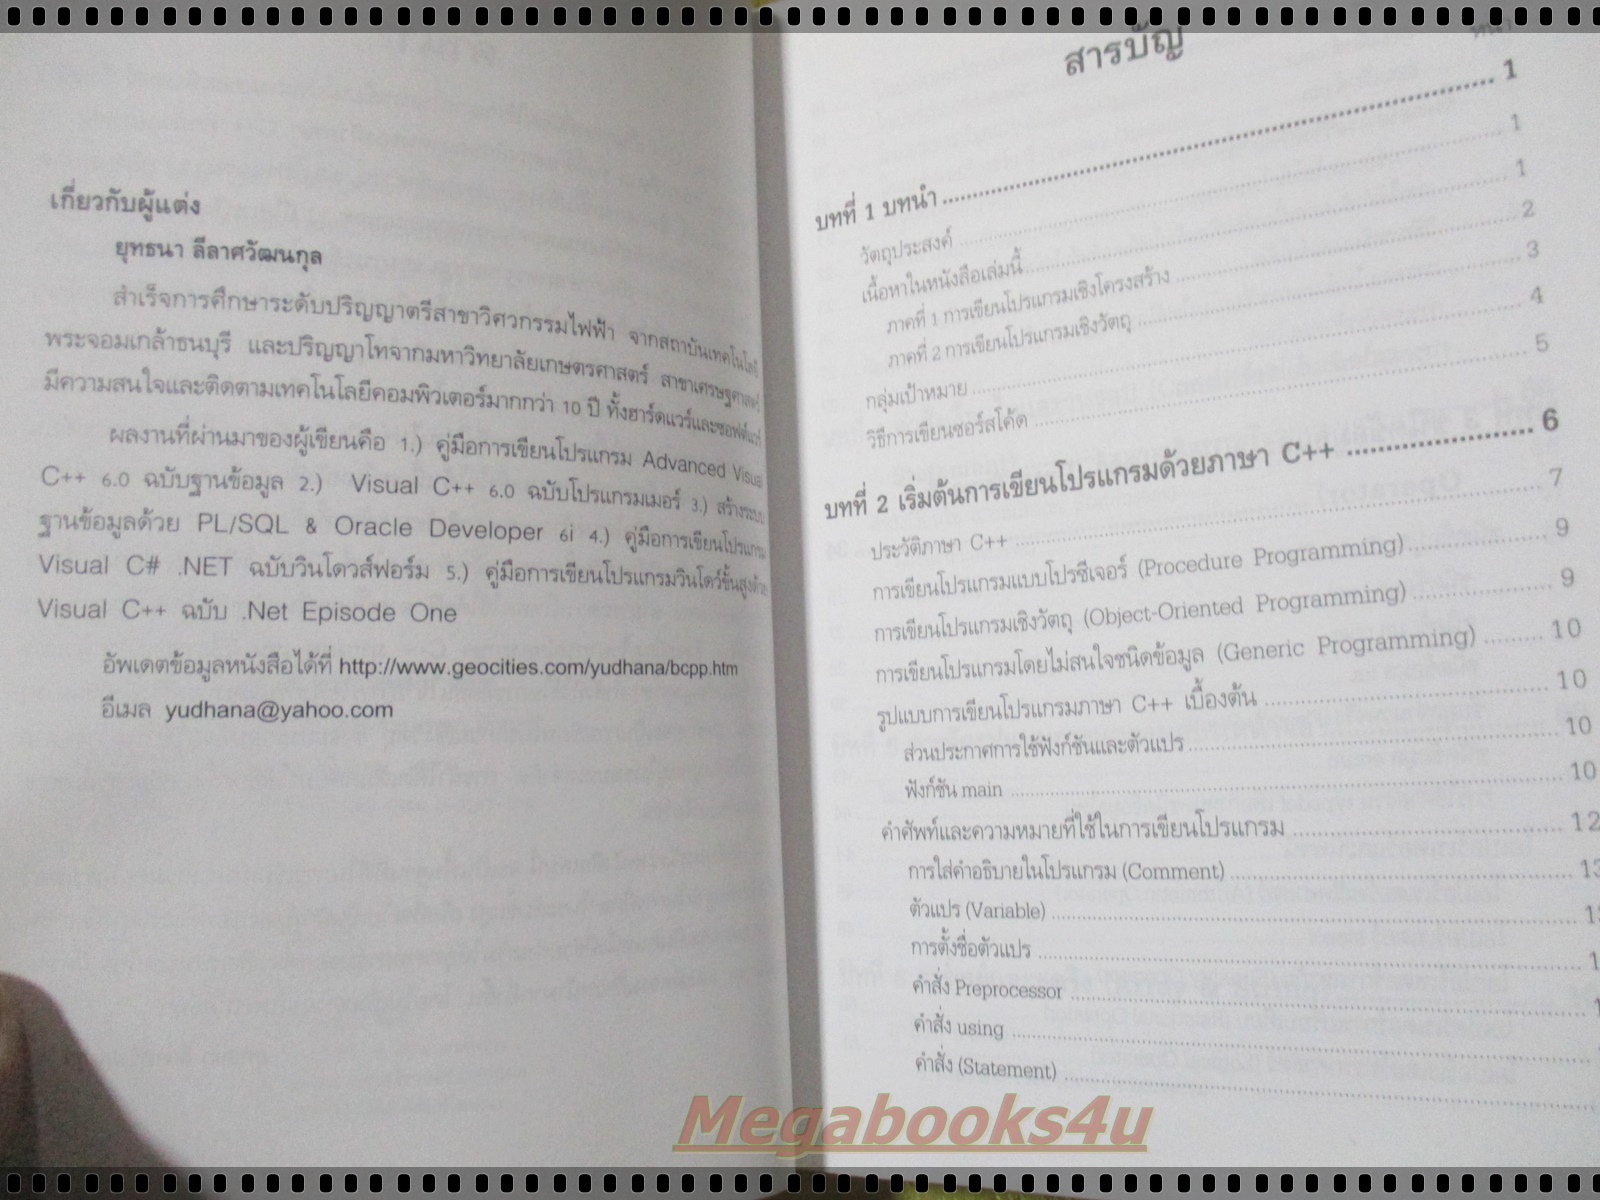 เกี่ยวกับผู้แต่ง
ยุทธนา ลีลาศวัฒนกุล
สำเร็จการศึกษาระดับปริญญาตรีสาขาวิศวกรรมไฟฟ้า จากสถาบันเทคโนโลยี
พระจอมเกล้าธนบุรี และปริญญาโทจากมหาวิทยาลัยเกษตรศาสตร์ สาขาเศรษฐศาสตร์
มีความสนใจและติดตามเทคโนโลยีคอมพิวเตอร์มากกว่า 10 ปี ทั้งฮาร์ดแวร์และซอฟต์แวร์
ผลงานที่ผ่านมาของผู้เขียนคือ 1.) คู่มือการเขียนโปรแกรม Advanced Visual
C++ 6.0 ฉบับฐานข้อมูล 2.) Visual C++ 6.0 ฉบับโปรแกรมเมอร์ 3.) สร้างระบบ
ฐานข้อมูลด้วย PL/SQL & Oracle Developer 6i 4.) คู่มือการเขียนโปรแกรม
Visual C# .NET ฉบับวินโดวส์ฟอร์ม 5.) คู่มือการเขียนโปรแกรมวินโดว์ขั้นสูงด้วย
Visual C++ ฉบับ .Net Episode One
อัพเดตข้อมูลหนังสือได้ที่ http://www.geocities.com/yudhana/bcpp.htm
อีเมล yudhana@yahoo.com
สารบัญ
หน้า
บทที่ 1 บทนำ 1
วัตถุประสงค์ 1
เนื้อหาในหนังสือเล่มนี้ 1
ภาคที่ 1 การเขียนโปรแกรมเชิงโครงสร้าง 2
ภาคที่ 2 การเขียนโปรแกรมเชิงวัตถุ 3
กลุ่มเป้าหมาย 4
วิธีการเขียนซอร์สโค้ด 5
บทที่ 2 เริ่มต้นการเขียนโปรแกรมด้วยภาษา C++ 6
ประวัติภาษา C++ 7
การเขียนโปรแกรมแบบโปรซีเจอร์ (Procedure Programming) 9
การเขียนโปรแกรมเชิงวัตถุ (Object-Oriented Programming) 9
การเขียนโปรแกรมโดยไม่สนใจชนิดข้อมูล (Generic Programming) 10
รูปแบบการเขียนโปรแกรมภาษา C++ เบื้องต้น 10
ส่วนประกาศการใช้ฟังก์ชันและตัวแปร 10
ฟังก์ชัน main 10
คำศัพท์และความหมายที่ใช้ในการเขียนโปรแกรม 12
การใส่คำอธิบายในโปรแกรม (Comment) 13
ตัวแปร (Variable)
การตั้งชื่อตัวแปร
คำสั่ง Preprocessor
คำสั่ง using
คำสั่ง (Statement)
Megabooks4u